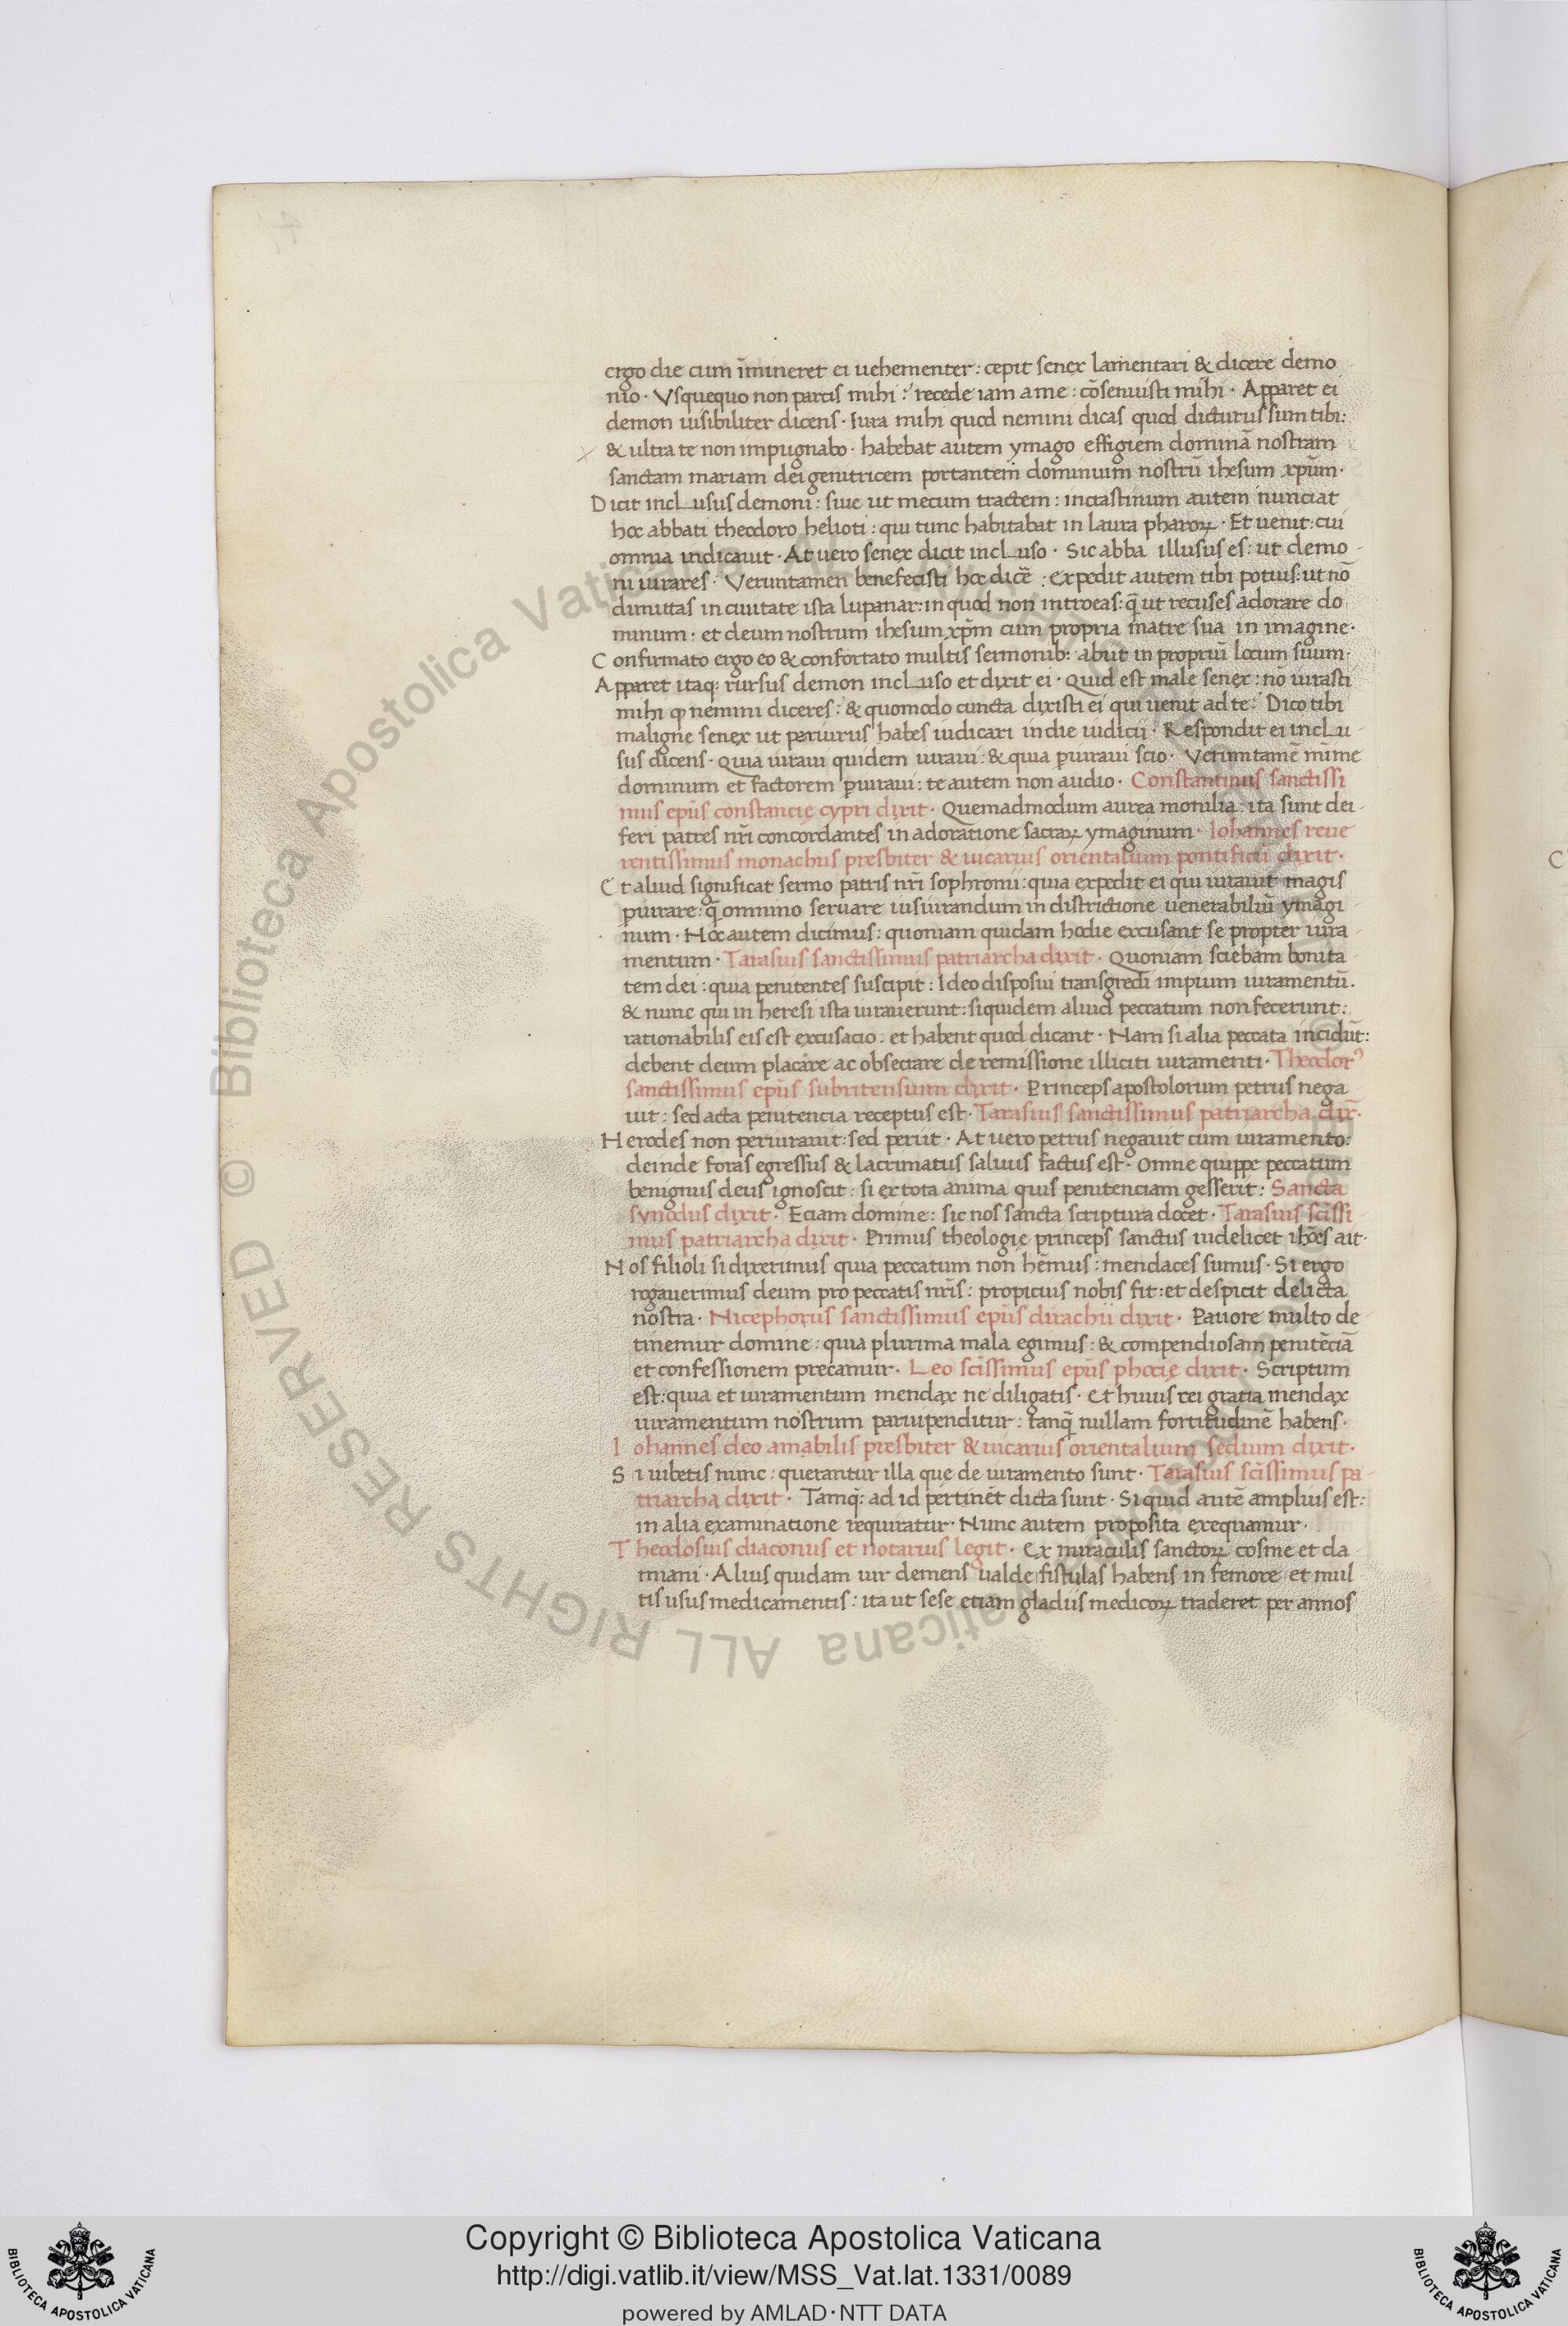 ergo die cum īmineret ei uehementer : cepit senex lamentari & dicere demo
nio · Vsquequo non parcis mihi : recede iam a me : cōsenuisti mihi · Apparet ei
demon uisibiliter dicens · Iura mihi quod nemini dicas quod dicturus sum tibi :
& ultra te non impugnabo · habebat autem ymago effigiem dominā nostram
sanctam mariam dei genitricem portantem dominum nostrū ihesum xp̄um ·
Dicit inclusus demoni : siue ut mecum tractem : incrastinum autem nunciat
hoc abbati theodoro helioti : qui tunc habitabat in laura pharoꝝ · Et uenit : cui
omnia indicauit · At uero senex dicit incluso · Sic abba illusus es : ut demo-
ni iurares · Veruntamen benefecisti hoc dicē : expedit autem tibi potius : ut nō
dimittas in ciuitate ista lupanar : in quod non introeas : q̄ ut recuses adorare do
minum : et deum nostrum ihesum xp̄m cum propria matre sua in imagine ·
Confirmato ergo eo & confortato multis sermonib; : abiit in propriū locum suum ·
Apparet itaq; rursus demon incluso et dixit ei · Quid est male senex : nō iurasti
mihi ꝙ nemini diceres : & quomodo cuncta dixisti ei qui uenit ad te : Dico tibi
maligne senex ut periurus habes iudicari in die iudicii · Respondit ei inclu-
sus dicens · Quia iuraui quidem iuraui : & quia ꝑiuraui scio · Verumtamē nīme
dominum et factorem ꝑiuraui : te autem non audio · Constantinus sanctissi
mus ep̄us constancię cypri dixit · Quemadmodum aurea monilia : ita sunt dei-
feri patres nr̄i concordantes in adoratione sacraꝝ ymaginum · Iohannes reue
rentissimus monachus presbiter & uicarius orientalium pontificū dixit ·
Et aliud significat sermo patris nr̄i sophronii : quia expedit ei qui iurauit magis
ꝑiurare : q̄ omnino seruare iusiurandum in districtione uenerabiliū ymagi
num · Hoc autem dicimus : quoniam quidam hodie excusant se propter iura
mentum · Tarasius sanctissimus patriarcha dixit · Quoniam sciebam bonita-
tem dei : quia penitentes suscipit : Ideo disposui transgredi impium iuramentū ·
& nunc qui in heresi ista iurauerunt : siquidem aliud peccatum non fecerunt :
rationabilis eis est excusacio : et habent quod dicant · Nam si alia peccata incidūt :
debent deum placare ac obsecrare de remissione illiciti iuramenti · Theodorꝰ
sanctissimus ep̄us subritensium dixit · Princeps apostolorum petrus nega
uit : sed acta penitencia receptus est · Tarasius sanctissimus patriarcha dix̄ ·
Herodes non periurauit : sed periit · At uero petrus negauit cum iuramento :
deinde foras egressus & lacrimatus saluus factus est · Omne quippe peccatum
benignus deus ignoscit : si ex tota anima quis penitenciam gesserit : Sancta
synodus dixit · Eciam domine : sic nos sancta scriptura docet · Tarasius sc̄issi
mus patriarcha dixit · Primus theologię princeps sanctus uidelicet ihōes ait ·
Nos filioli si dixerimus quia peccatum non hēmus : mendaces sumus · Si ergo
rogauerimus deum pro peccatis nr̄is : propicius nobis fit : et despicit delicta
nostra · Nicephorus sanctissimus ep̄us dirachii dixit · Pauore multo de
tinemur domine : quia plurima mala egimus : & compendiosam penitēciā
et confessionem precamur · Leo sc̄issimus ep̄us phocię dixit · Scriptum
est : quia et iuramentum mendax ne diligatis · Et huius rei gratia mendax
iuramentum nostrum paruipenditur : tanq̄ nullam fortitudinē habens ·
Iohannes deo amabilis presbiter & uicarius orientalium sedium dixit ·
Si iubetis nunc : querantur illa que de iuramento sunt · Tarasius sc̄issimus pa-
triarcha dixit · Tamq̄ : ad id pertinēt dicta sunt · Si quid autē amplius est :
in alia examinacione requiratur · Nunc autem proposita exequamur ·
Theodosius diaconus et notarius legit · Ex miraculis sanctoꝝ cosme et da-
miani · Alius quidam uir demens ualde fistulas habens in femore et mul-
tis usus medicamentis : ita ut sese etiam gladiis medicoꝝ traderet per annos
© Biblioteca Apostolica Vaticana ALL RIGHTS RESERVED
Copyright © Biblioteca Apostolica Vaticana
http://digi.vatlib.it/view/MSS_Vat.lat.1331/0089
powered by AMLAD·NTT DATA
BIBLIOTECA APOSTOLICA VATICANA
BIBLIOTECA APOSTOLICA VATICANA